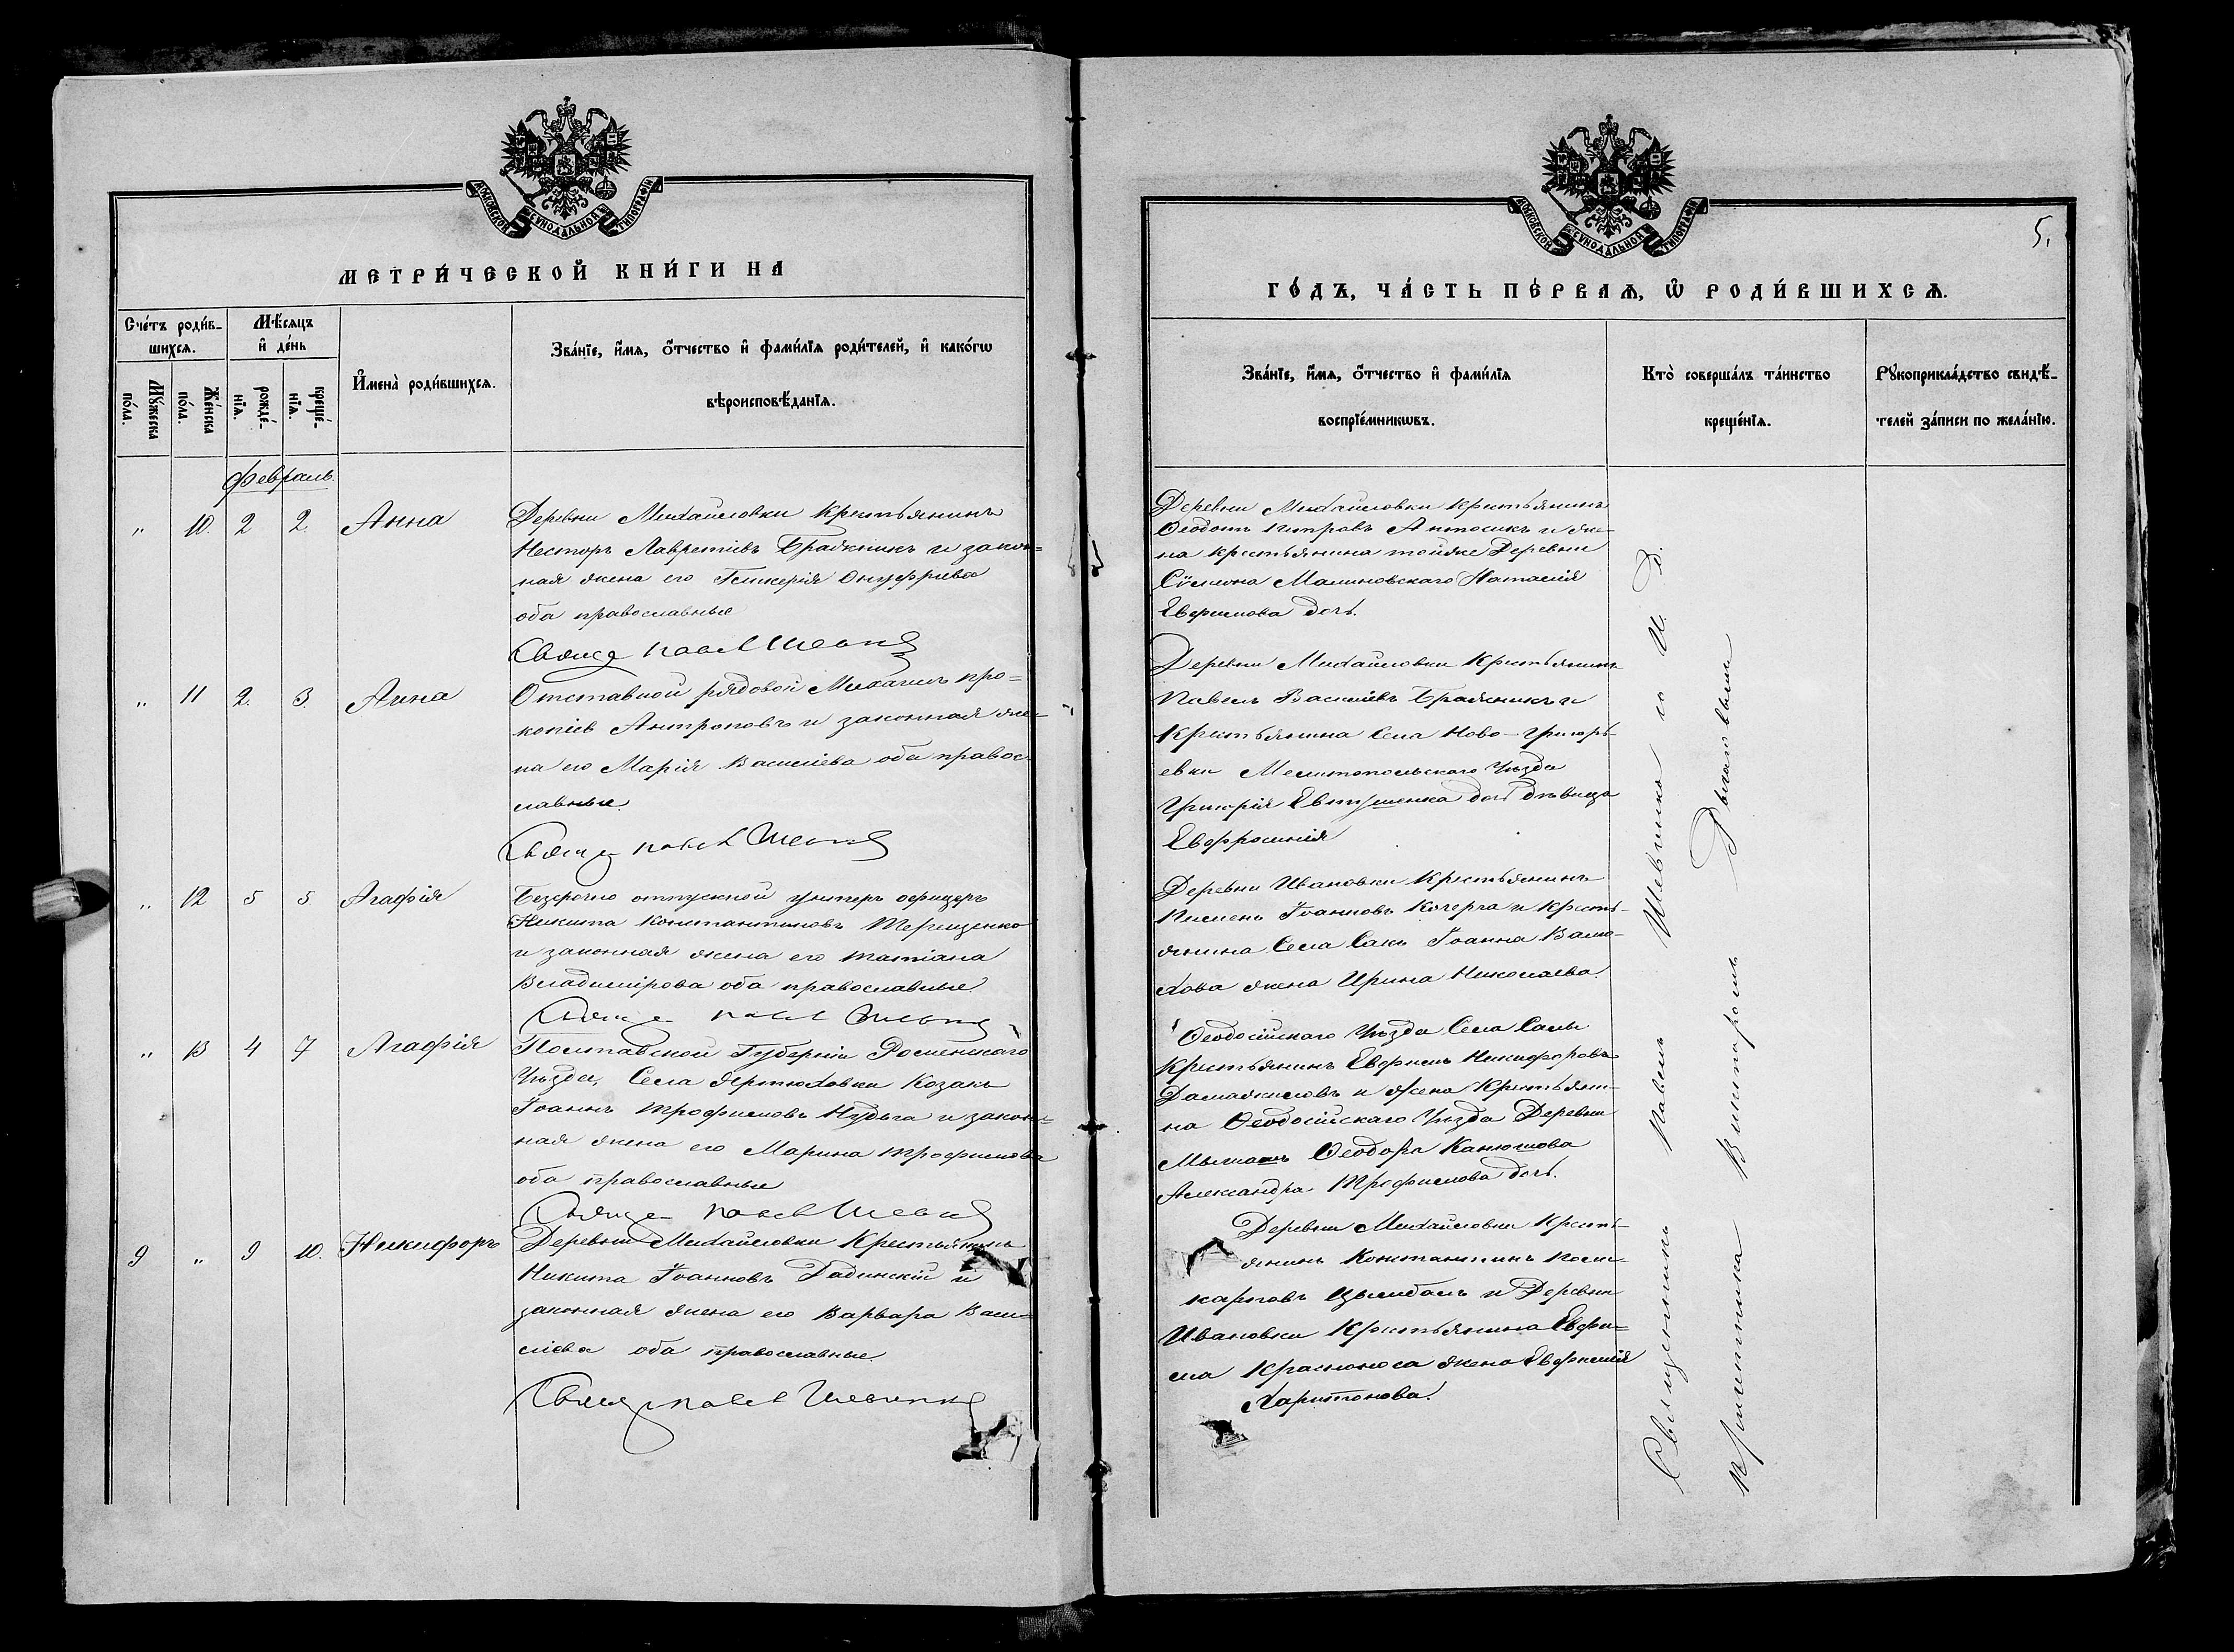 МОСКОВСКОЙ СУНОДАЛЬНОЙ ТИПОГРАФІИ
МЕТРИ́ЧЕСКОЙ КНИ́ГИ НА
Сче́тъ роди́в-
шихсѧ.
Мѣ́сѧцъ
и҆ де́нь
Мꙋ́жеска
по́ла.
Же́нска
по́ла.
рожде́-
нїѧ.
креще́-
нїѧ.
И҆мена̀ роди́вшихсѧ.
Зва́нїе, и҆́мѧ, ѻ҆́тчество и҆ фами́лїѧ роди́телей, и҆ како́гѡ
вѣроисповѣ́данїѧ.
Февраль.
„ 10. 2 2 Анна
Деревни Михайловки Крестьянинъ
Несторъ Лаврентіевъ Бражникъ и закон=
ная жена его Гликерія Онуфріева
оба православные
Священ Павел Шевч
„ 11 2. 3. Анна
Отставной рядовой Михаилъ Про=
копіев Антроповъ и законная же-
на его Марія Василіева оба правос-
лавные.
Священ Павел Шевч
„ 12 5 5 Агафія
Безсрочно отпускной унтеръ офицеръ
Никита Константиновъ Терещенко
и законная жена его Татіана
Владимірова оба православные
Священ Павел Шевч
„ 13 4 7 Агафія
Полтавской Губерніи Роменскаго
Уѣзда, Села Артюховки Козакъ
Іоаннъ Трофимовъ Нудьга и закон=
ная жена его Марина Трофимова
оба православные
Священ Павел Шевч
9 „ 9 10. Никифоръ
Деревни Михайловки Крестьянинъ
Никита Іоанновъ Гадинскій и
законная жена его Варвара Васи=
ліева оба православные.
Священ Павел Шевченко
МОСКОВСКОЙ СУНОДАЛЬНОЙ ТИПОГРАФІИ
5.
ГО́ДЪ, ЧА́СТЬ ПЕ́РВАѦ, Ѡ҆ РОДИ́ВШИХСѦ.
Зва́нїе, и҆́мѧ, ѻ҆́тчество и҆ фами́лїѧ
воспрїе́мникѡвъ.
Кто̀ соверша́лъ та́инство
креще́нїѧ.
Рꙋкоприкла́дство свидѣ́-
телей за́писи по жела́нїю.
Деревни Михайловки Крестьянинъ
Ѳеодотъ Петровъ Антосикъ и же-
на крестьянина тойже Деревни
Сѷмеона Малиновскаго Наталія
Евфимова дочь.
Деревни Михайловки Крестьянинъ
Павелъ Василіевъ Бражникъ и
Крестьянина Села Ново-Григорь-
евки Мелитопольскаго Уѣзда
Григорія Евтушенка дочь дѣвица
Евфросинія
Деревни Ивановки Крестьянинъ
Пименъ Іоанновъ Кочерга и Кресть-
янина Села Сакъ Іоанна Вало-
хова жена Ирина Николаева.
Ѳеодосійскаго Уѣзда Села Салы
Крестьянинъ Евфимъ Никифоровъ
Дамажиловъ и Жена Крестьяни-
на Ѳеодосійскаго Уѣзда Деревни
Ѳеодора Канюшова
Александра Трофимова дочь.
Деревни Михайловки Кресть-
янинъ Константинъ Поли-
карповъ Цымбалъ и Деревни
Ивановки Крестьянина Евфи=
ма Красноноса жена Евфимія
Харитонова.
Священникъ Павелъ Шевченко и И. Д.
Причетника Викторомъ